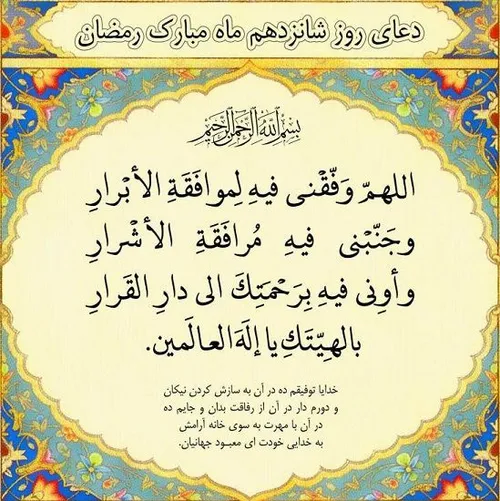 دعای روز شانزدهم ماه مبارک رمضان
بسم الله الرحمن الرحیم
اللهمّ وَفّقْنی فیهِ لِموافَقَةِ الأبْرارِ
وجَنّبْنی فیهِ مُرافَقَةِ الأشْرارِ
وأونی فیهِ بِرَحْمَتِكَ الی دارِ القَرارِ
بالهِیّتَكِ یا إلَهَ العالَمین.
خدایا توفیقم ده در آن به سازش کردن نیکان
و دورم دار در آن از رفاقت بدان و جایم ده
در آن با مهرت به سوی خانه آرامش
به خدایی خودت ای معبود جهانیان.